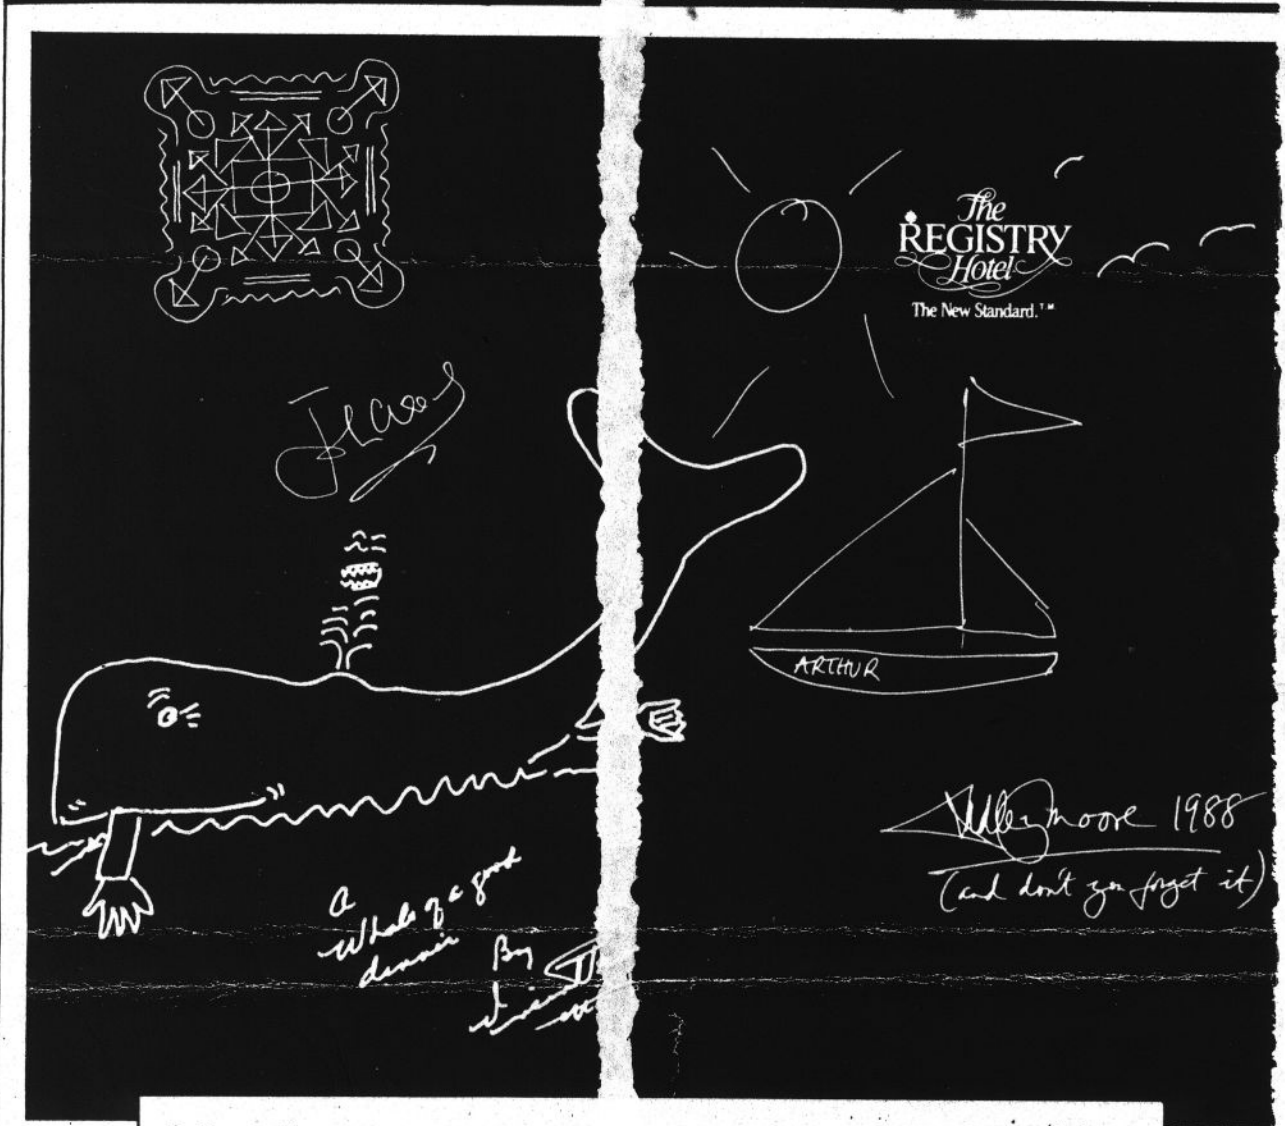 The
REGISTRY
Hotel
The New Standard.™
ARTHUR
Dudley Moore 1988
(and don't you forget it)
A
Whale of a good
dinner
By